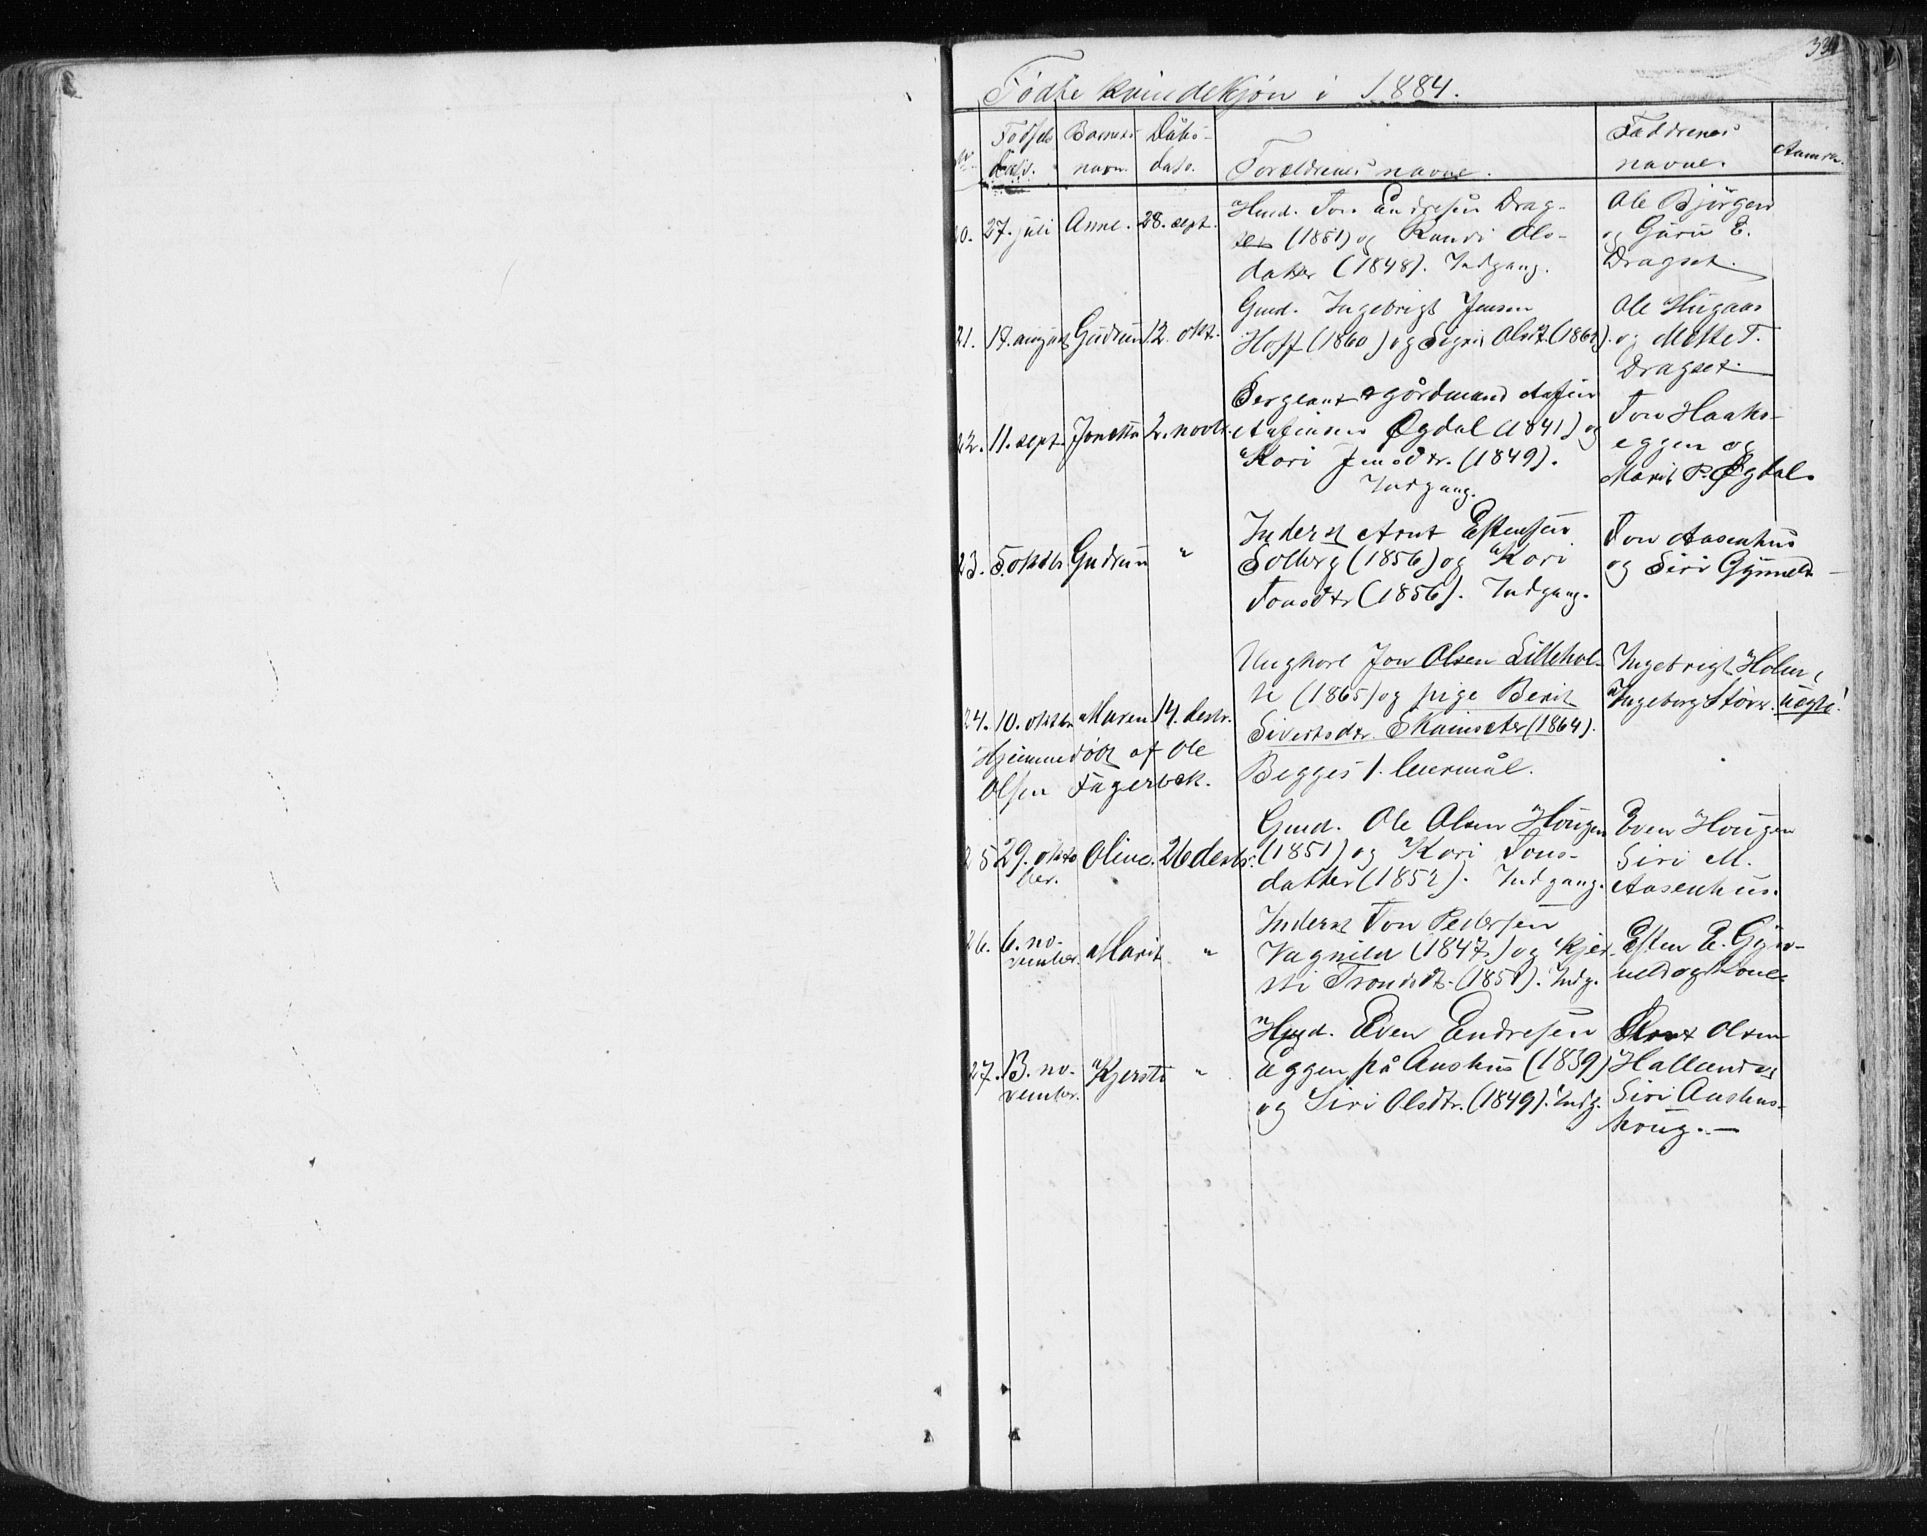 Fødte kvindekjøn i 1884.
Nr. Fødsels- dato. Barnets navn. Dåbs- dato. Forældrenes navne. Faddrenes navne. Anmrk.
20. 27. juli Anne. 28. sept. Husd. Jon Endresen Drag-
set (1851) og Randi Ols-
datter (1848). Indgang.
Ole Bjørgen
og Guru E.
Dragset.
21. 18. august Gudrun 12. okt. Gmd. Ingebrigt Jensen
Hoff (1860) og Sigri Olsdt. (1862).
Ole Hugaas
og Mette T.
Dragset.
22. 11. sept. Jonetta 2. novbr. Sergeant & gårdmand Anfin
Anfinsen Øgdal (1841) og
Kari Jensdtr. (1849).
Indgang.
Jon Haaks-
eggen og
Marit P. Øgdal.
23. 5. oktbr. Gudrun " Inderst Arnt Estensen
Solberg (1856) og Kari
Jonsdtr (1856). Indgang.
Jon Aasenhus
og Siri Gynneld
24. 10. oktbr. Maren 14. decbr. Ungkarl Jon Olsen Lillehol-
te (1865) og pige Berit
Sivertsdtr. Skainseter (1864).
Begges 1. leiermål.
Hjemmedøbt af Ole
Olsen Fagerbek.
Ingebrigt Holm,
Ingeborg Støvr.
uægte!
25. 29. okto-
ber. Oline. 26 decbr. Gmd. Ole Olsen Hougen
(1851) og Kari Jons-
datter (1852). Indgang.
Even Hougen
Siri M.
Aasenhus.
26. 6. no-
vember. Marit " Inderst Jon Pedersen
Vagnild (1847) og Kjer-
sti Trondsdt. (1851). Indg.
Esten E. Gyn-
neld og kone.
27. 13. no-
vember. Kjersti " Husd. Even Endresen
Eggen på Aushus (1839)
og Siri Olsdtr. (1849). Indg.
Arnt Olsen
Halland og
Siri Aushus-
houg. —